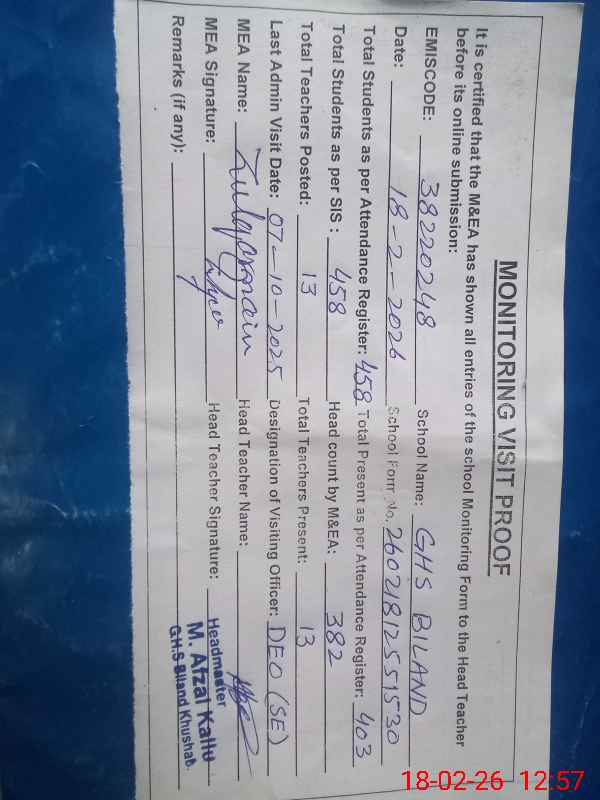 MONITORING VISIT PROOF
It is certified that the M&EA has shown all entries of the school Monitoring Form to the Head Teacher
before its online submission:
EMISCODE: 38220248 School Name: GHS BILAND
Date: 18-2-2026 School Form No. 260218125551530
Total Students as per Attendance Register: 458 Total Present as per Attendance Register: 403
Total Students as per SIS : 458 Head count by M&EA: 382
Total Teachers Posted: 13 Total Teachers Present: 13
Last Admin Visit Date: 07-10-2025 Designation of Visiting Officer: DEO (SE)
MEA Name: Zulqarnain Head Teacher Name:
MEA Signature: Head Teacher Signature: Headmaster
M. Afzal Kallu
G.H.S Biland Khushab.
Remarks (if any):
18-02-26 12:57